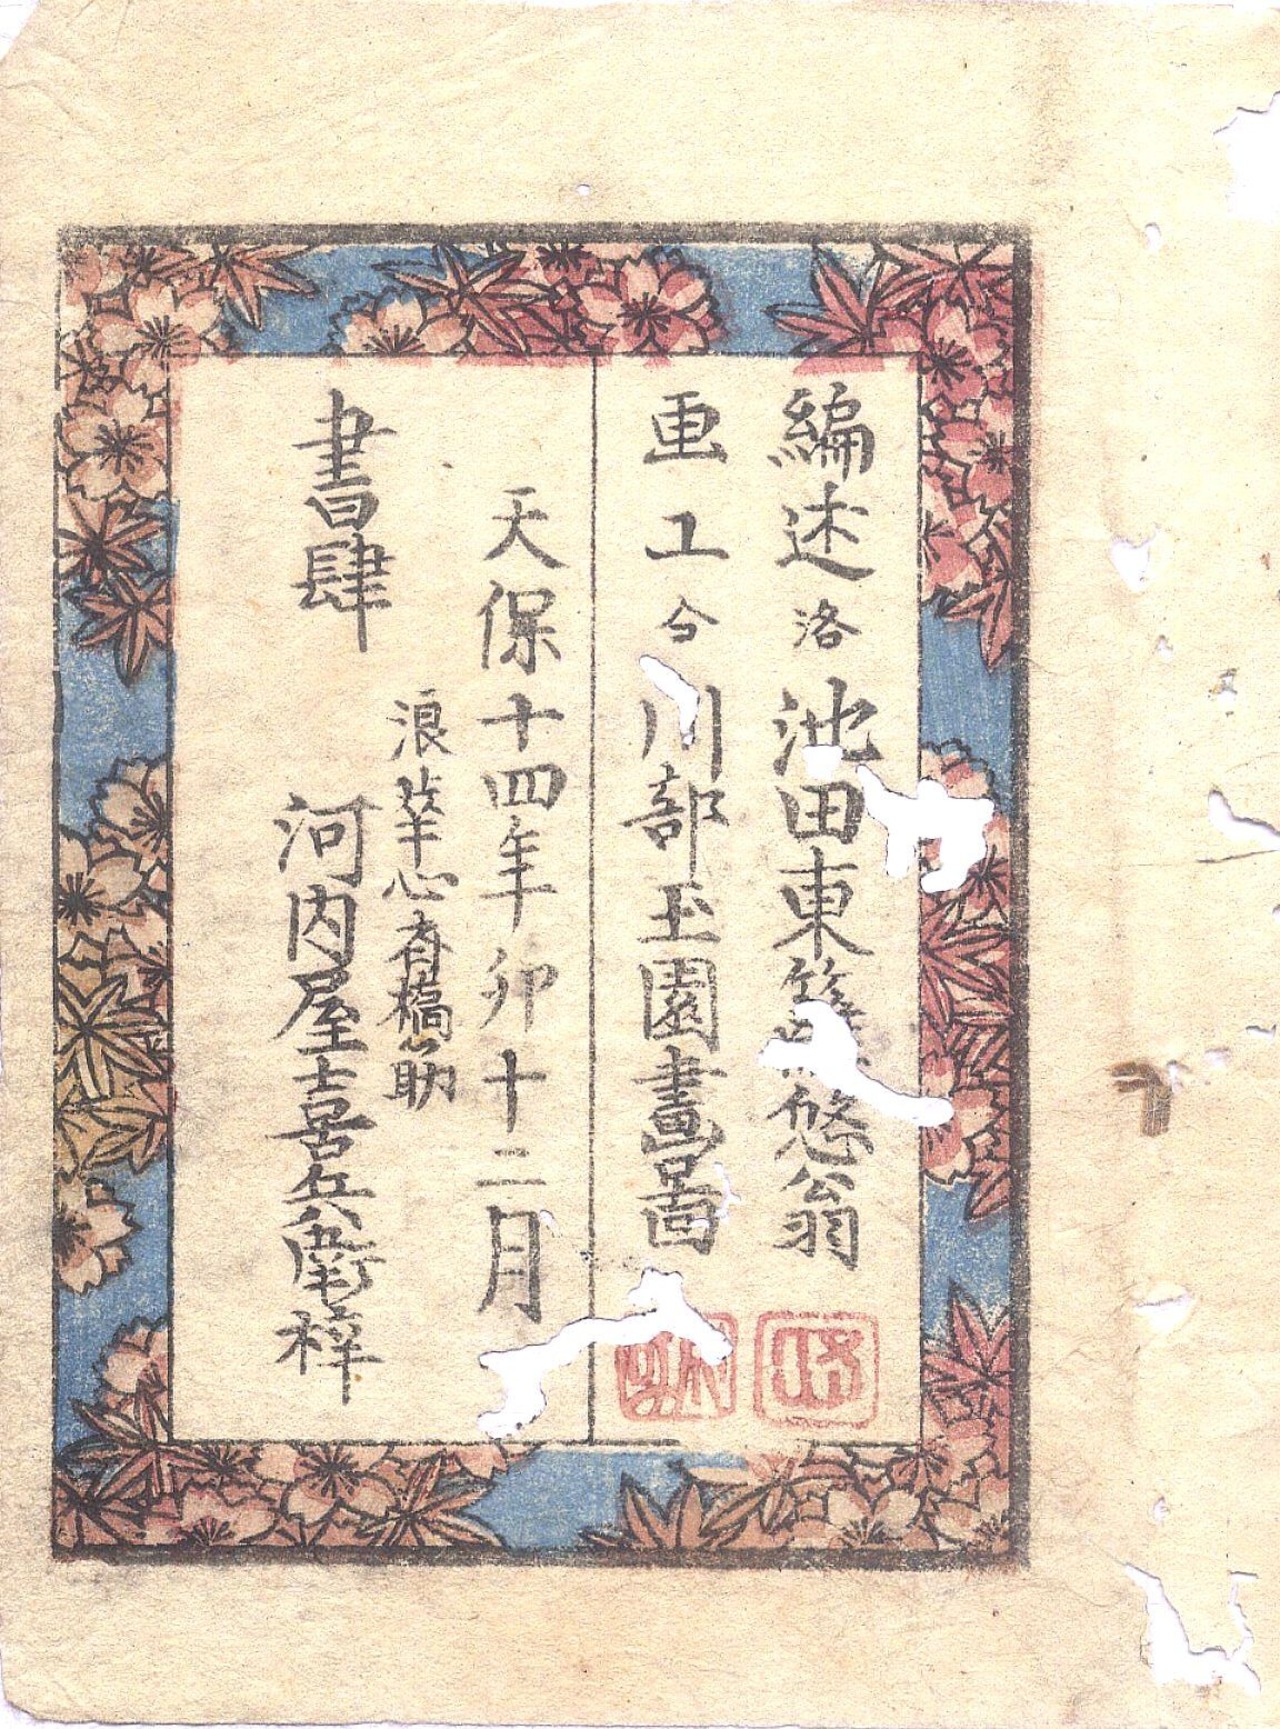 編述 洛 池田東籬亭悠翁
画工 今 川部玉園畫啚
天保十四年卯十二月
浪華心斎橋筋
書肆 河内屋喜兵衛梓